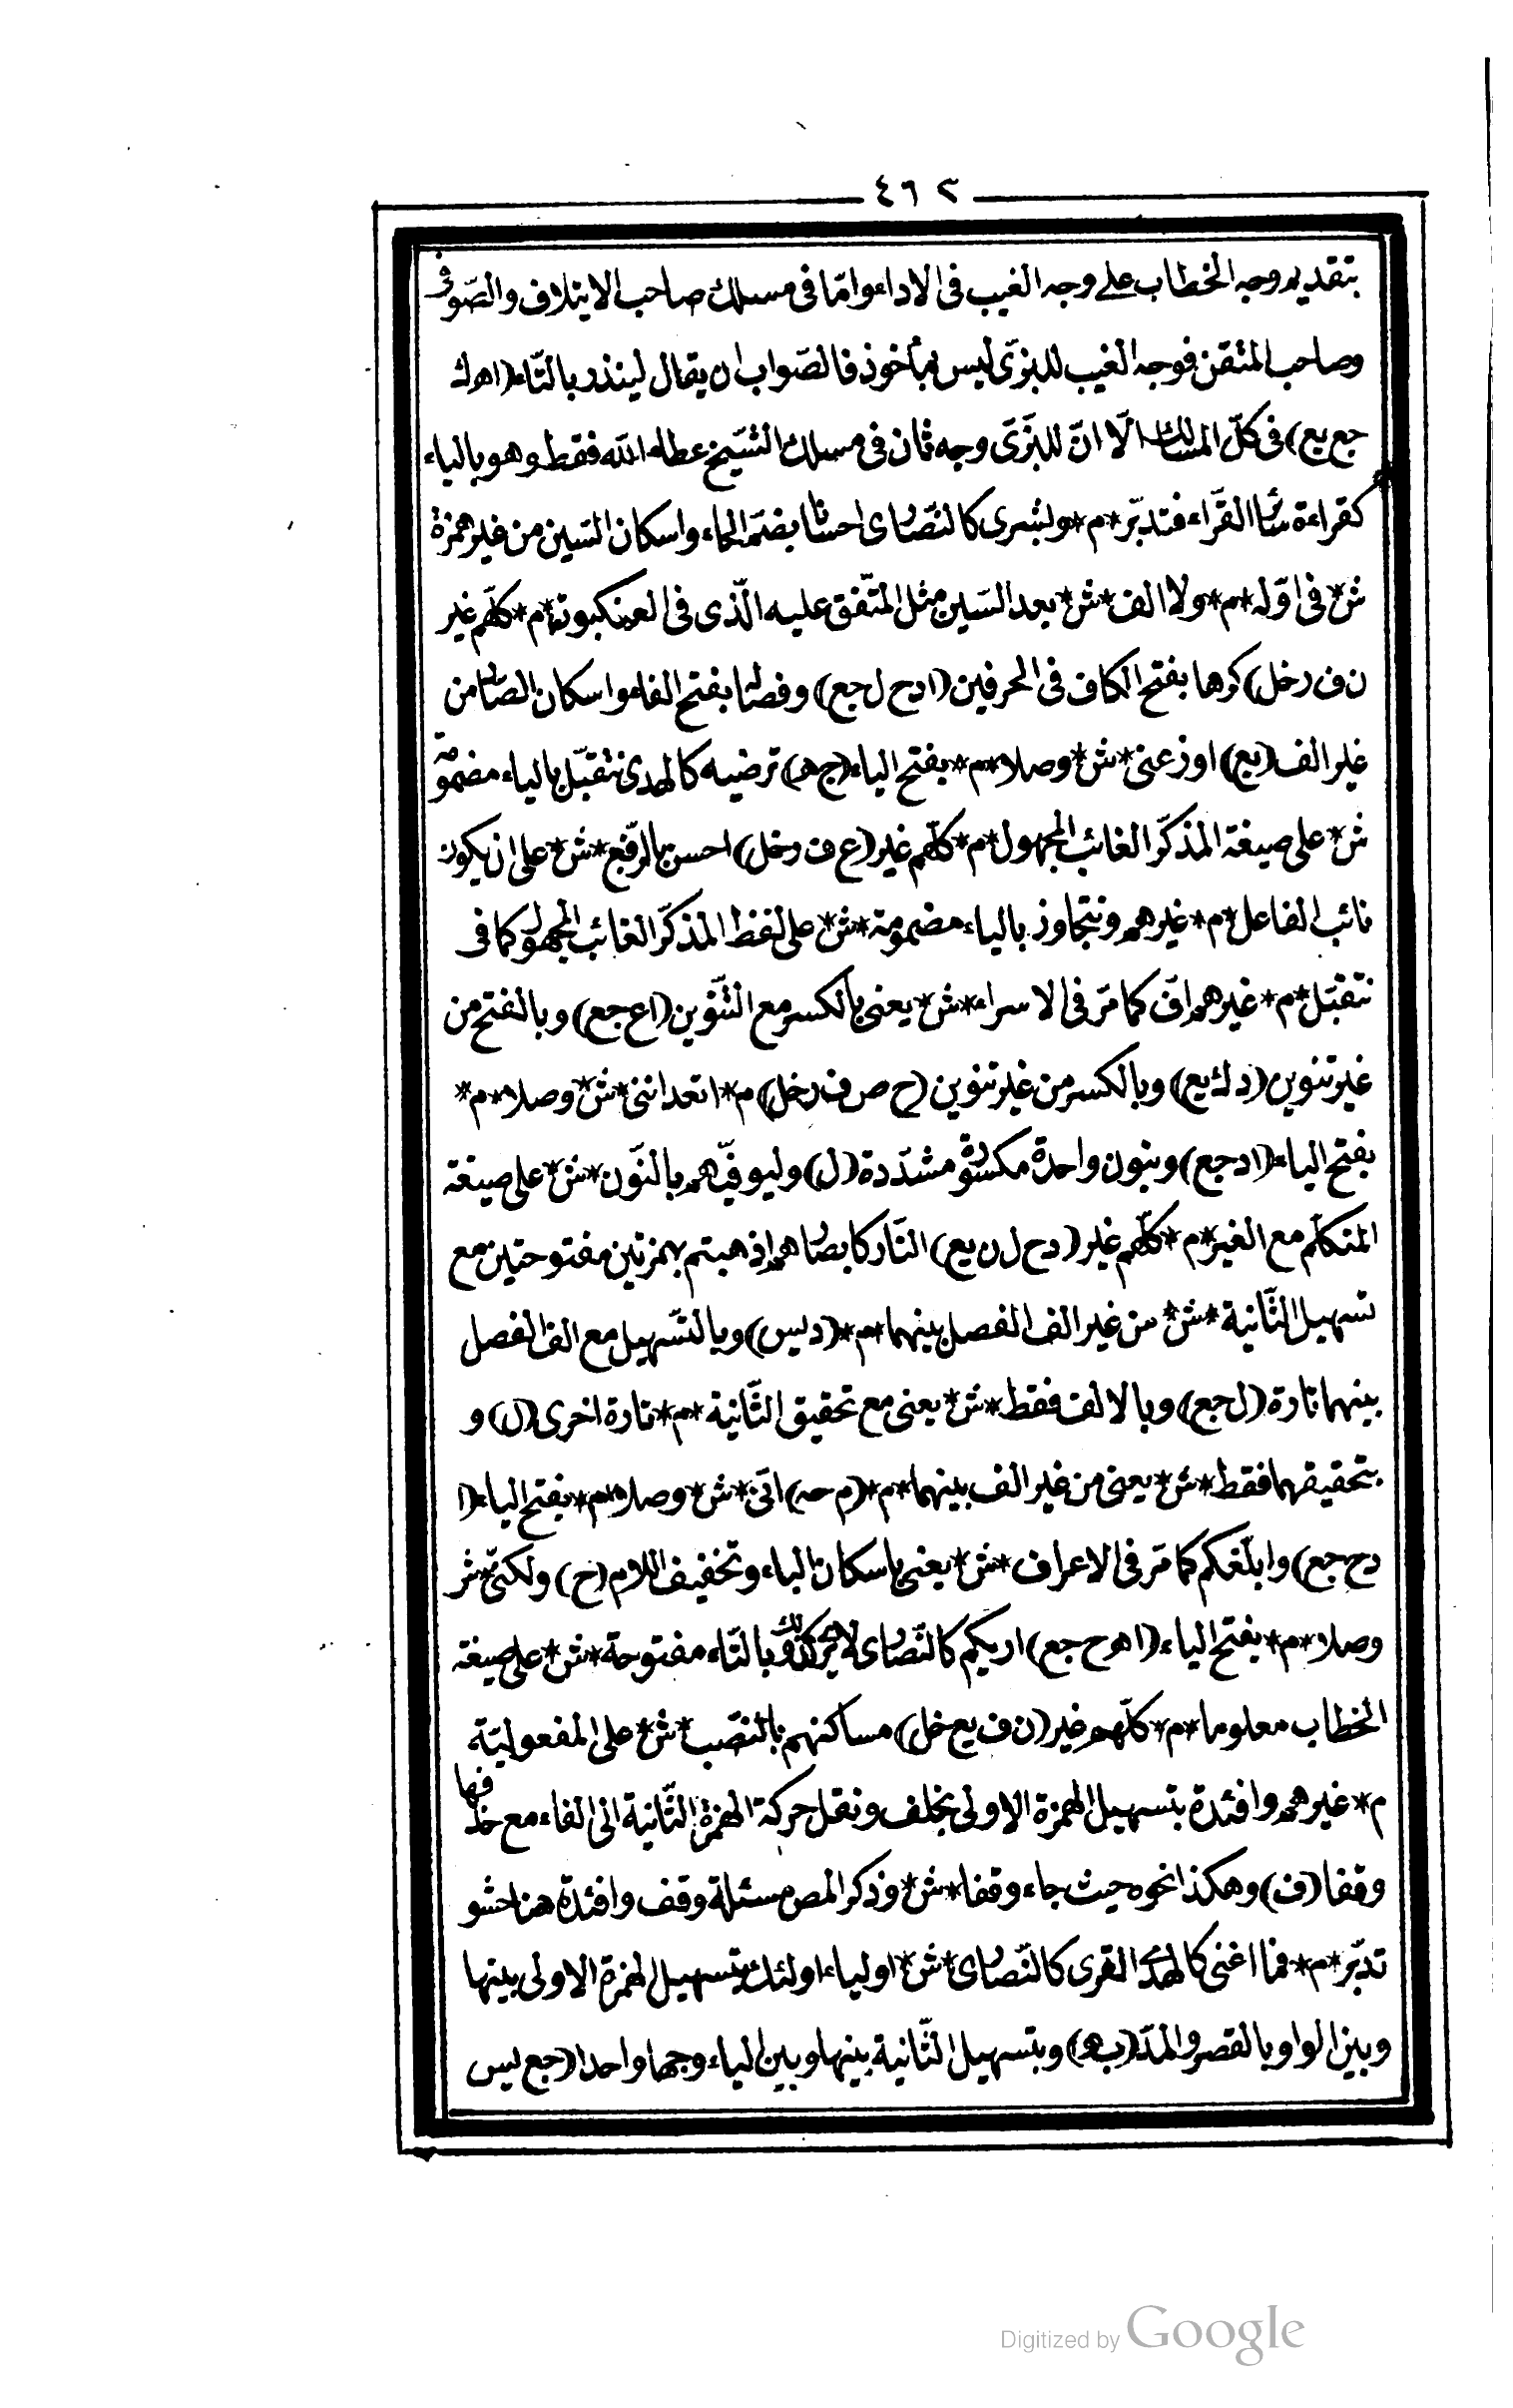 ٤٦٢
بتقديم وجه الخطاب على وجه الغيب فى الاداء وامّا فى مسلك صاحب الايتلاف والصّوفى
وصاحب المتقن فوجه الغيب للبزّى ليس بمأخوذ فالصّواب ان يقال لينذر بالتّاء (اهرك
جع يع) فى كلّ المسالك الّا انّ للبَزّىّ وجه ثان فى مسلك الشّيخ عطاء الله فقط وهو بالياء
كقراءة سائر القرّاء فتدبّر*م*وبشرى كالنّصارى احسانا بضمّ الحاء واسكان السّين من غير همزة
ش*فى اوّله*م*ولا الف*ش*بعد السّين مثل المتّفق عليه الّذى فى العنكبوت*م*كلّهم غير
ن ف رخل) كرها بفتح الكاف فى الحرفين (ادح ل جع) وفصاله بفتح الفاء واسكان الصّاد من
غير الف (يع) اوزعنى*ش*وصلا*م*بفتح الياء (ج ه) ترضيه كالهدى نتقبّل بالياء مضمومة
ش*على صيغة المذكّر الغائب المجهول*م*كلّهم غير (ع ف رخل) احسن بالرّفع*ش*على ان يكون
نائب الفاعل*م*غيرهم ونتجاوز بالياء مضمومة*ش*على لفظ المذكّر الغائب المجهول كما فى
نتقبّل*م*غيرهم افّ كما مرّ فى الاسراء*ش*يعنى بالكسر مع التّنوين (اع جع) وبالفتح من
غير تنوين (د ك يع) وبالكسر من غير تنوين (ح ص ف رخل) م*اتعداننى*ش*وصلا*م*
بفتح الياء (ادجع) وبنون واحدة مكسورة مشدّدة (ل) وليوفّيهم بالنّون*ش*على صيغة
المتكلّم مع الغير*م*كلّهم غير (دح ل ن يع) النّار كابصارهم اذهبتم بهمزتين مفتوحتين مع
تسهيل الثّانية*ش*من غير الف الفصل بينهما*م*(د يس) وبالتّسهيل مع الف الفصل
بينهما تارة (ل جع) وبالالف فقط*ش*يعنى مع تحقيق الثّانية*م*تارة اخرى (ل) و
بتحقيقهما فقط*ش*يعنى من غير الف بينهما*م*(م حه) انّى*ش*وصلا*م*بفتح الياء (ا
دح جع) وابلّغكم كما مرّ فى الاعراف*ش*يعنى باسكان الباء وتخفيف اللام (ح) ولكنّى*ش
وصلا*م*بفتح الياء (اهرح جع) اريكم كالنّصارى لا يرى كذلك وبالتّاء مفتوحة*ش*على صيغة
الخطاب معلوما*م*كلّهم غير (ن ف يع خل) مساكنهم بالنّصب*ش*على المفعوليّة
م*غيرهم وافئدة بتسهيل الهمزة الاولى بخلف ونقل حركة الهمزة الثّانية الى الفاء مع حذفها
وقفا (ف) وهكذا نحوه حيث جاء وقفا*ش*وذكر المص مسئلة وقف وافئدة هنا حشو
تدبّر*م*فما اغنى كالهدى القرى كالنّصارى*ش*اولياء اولئك بتسهيل الهمزة الاولى بينها
وبين الواو بالقصر والمدّ (ب ه) وبتسهيل الثّانية بينها وبين الياء وجها واحدا (جع ليس
Digitized by Google